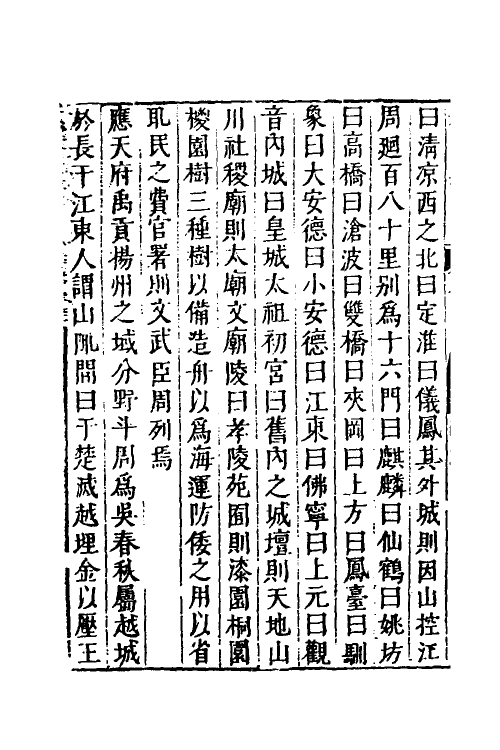 曰清凉西之北曰定淮曰儀鳳其外城則因山控江
周廻百八十里别爲十六門曰麒麟曰仙鶴曰姚坊
曰高橋曰滄波曰雙橋曰夾岡曰上方曰鳳臺曰馴
象曰大安德曰小安德曰江東曰佛寧曰上元曰觀
音內城曰皇城太祖初宮曰舊內之城壇則天地山
川社稷廟則太廟文廟陵曰孝陵苑囿則漆園桐園
椶園樹三種樹以備造舟以爲海運防倭之用以省
民之費官署則文武臣周列焉
應天府禹貢揚州之域分野斗周爲吳春秋屬越城
於長干江東人謂山隴間曰干楚滅越埋金以壓王